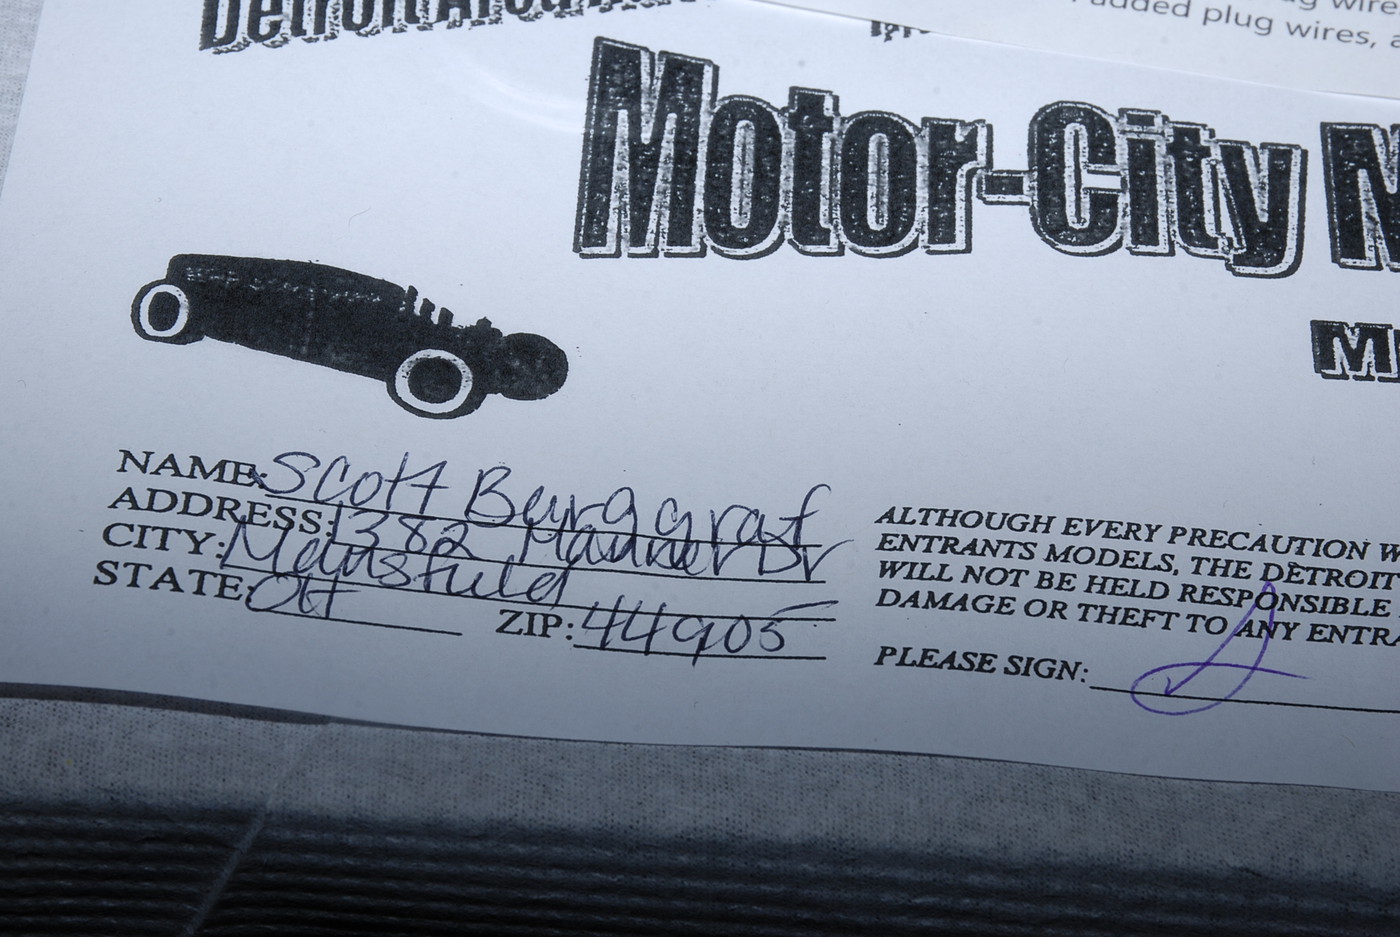 plug wire
added plug wires, a
Detroit Area
Motor-City M
NAME: Scott Burggraf
ADDRESS: 1382 Manner Dr
CITY: Mansfield
STATE: OH ZIP: 44905
ALTHOUGH EVERY PRECAUTION W
ENTRANTS MODELS, THE DETROIT
WILL NOT BE HELD RESPONSIBLE
DAMAGE OR THEFT TO ANY ENTRA
PLEASE SIGN: